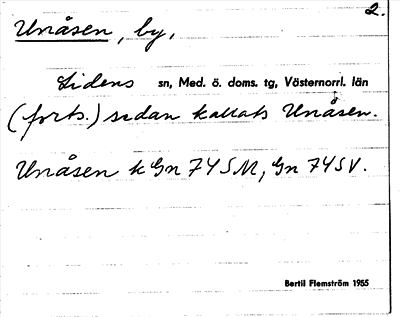 2.
Unåsen, by,
Lidens sn, Med. ö. doms. tg, Västernorrl. län
(forts.) sedan kallats Unåsen.
Unåsen k Gn 74 SM, Gn 74 SV.
Bertil Flemström 1955